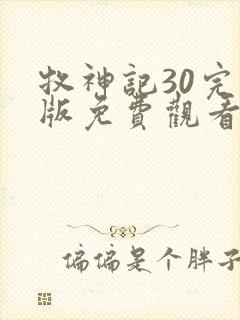 牧神記30完
版免費觀看
偏偏是个胖子